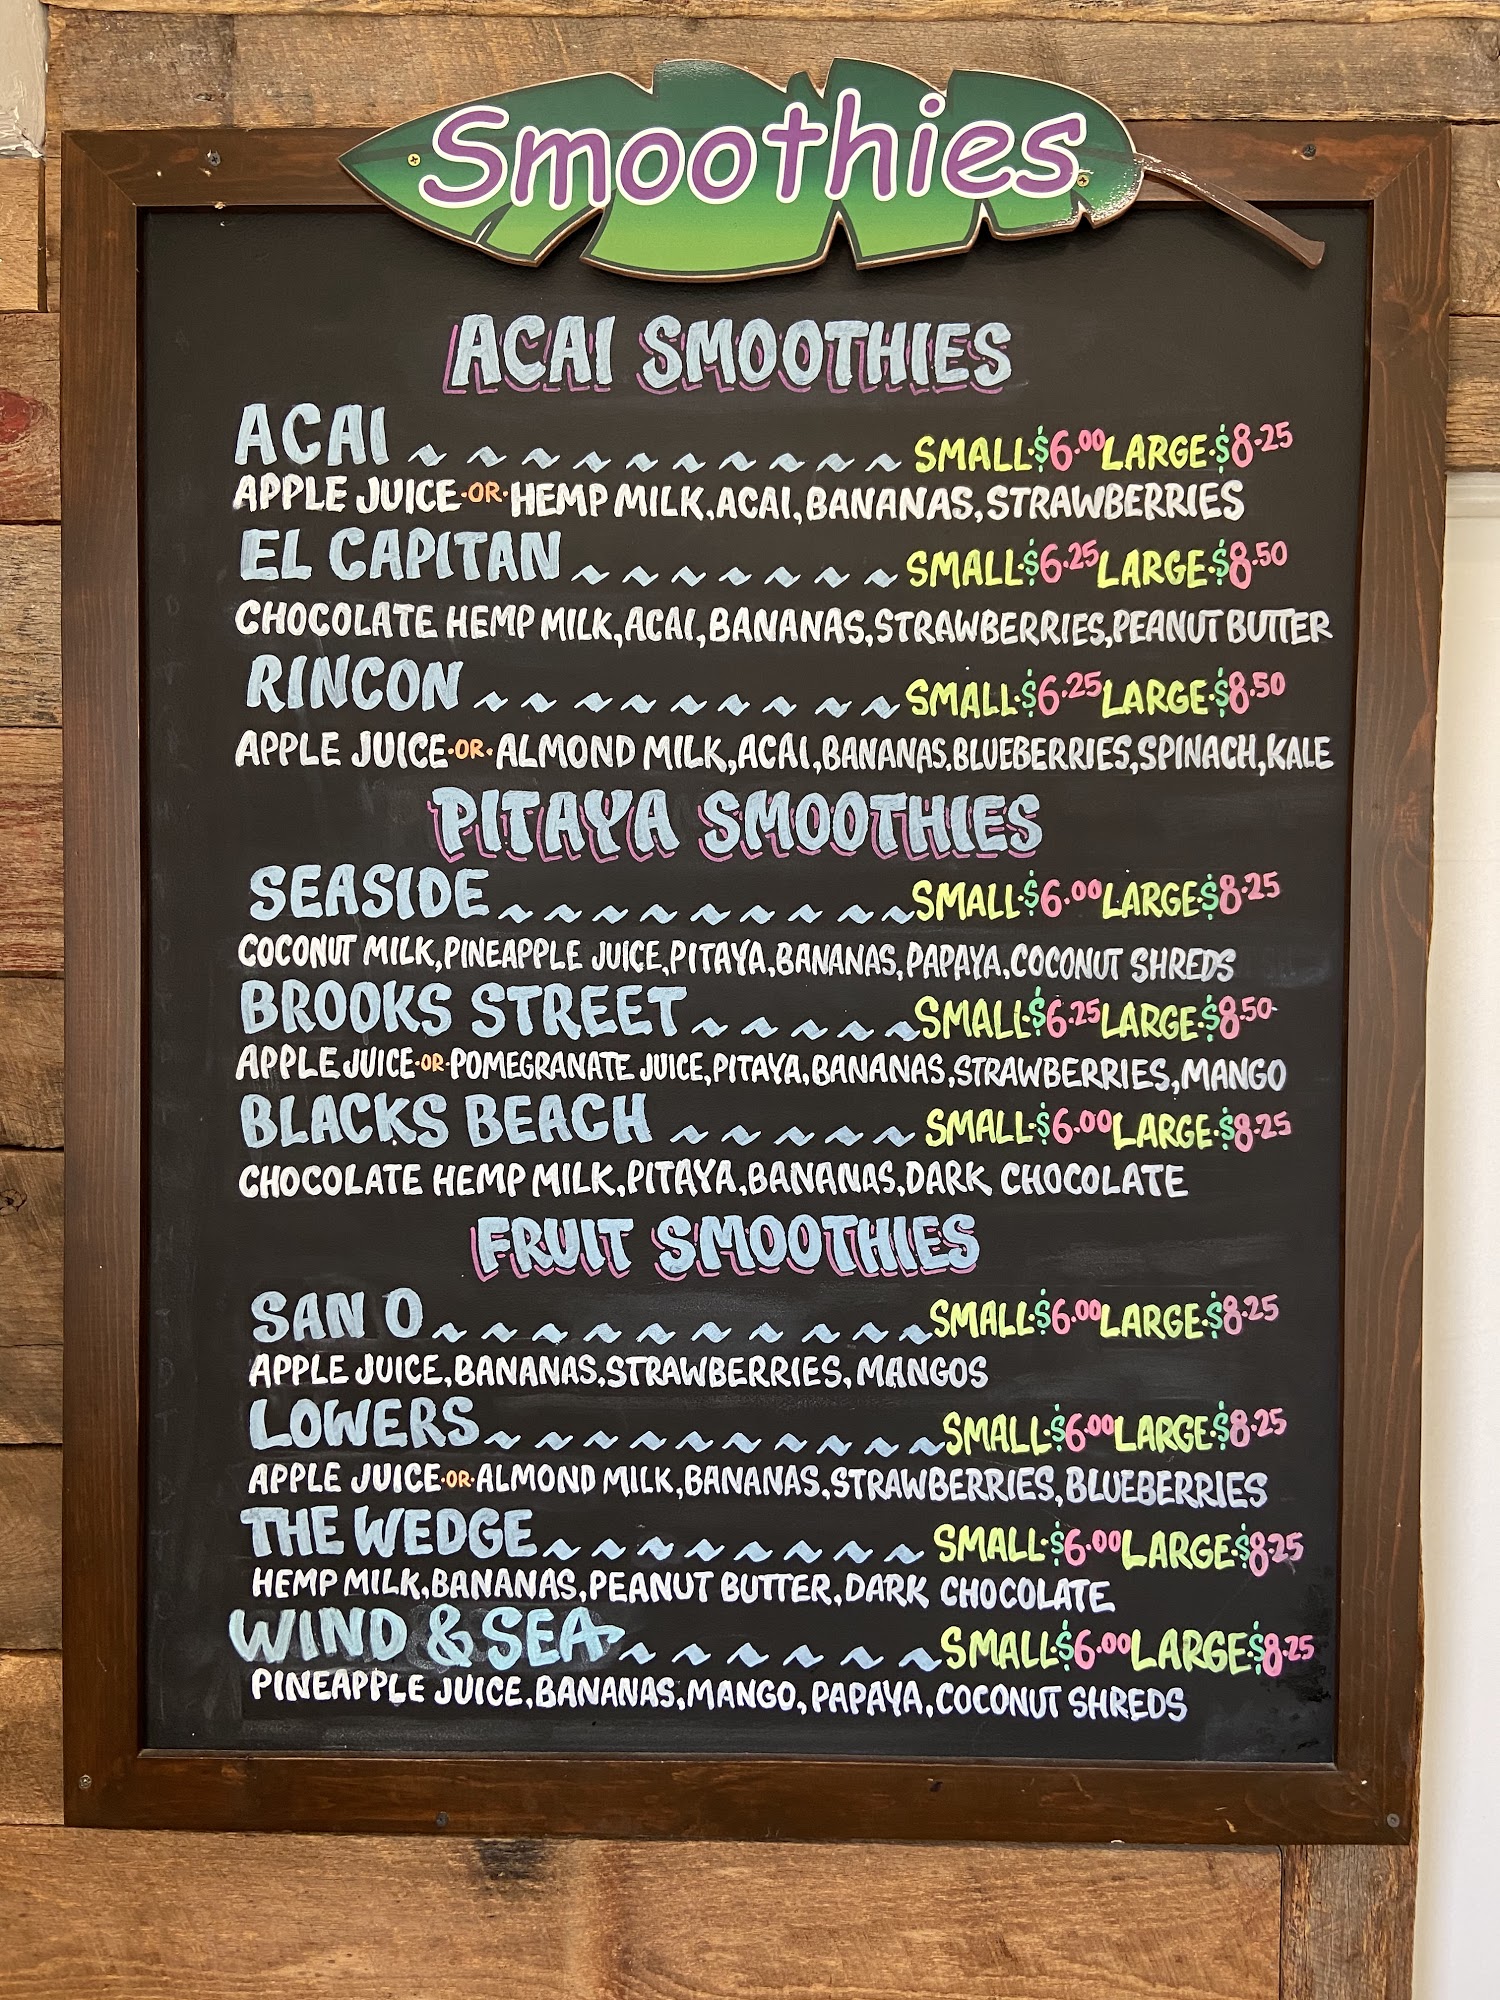 Smoothies
ACAI SMOOTHIES
ACAI SMALL·$6.00 LARGE·$8.25
APPLE JUICE·OR·HEMP MILK, ACAI, BANANAS, STRAWBERRIES
EL CAPITAN SMALL·$6.25 LARGE·$8.50
CHOCOLATE HEMP MILK, ACAI, BANANAS, STRAWBERRIES, PEANUT BUTTER
RINCON SMALL·$6.25 LARGE·$8.50
APPLE JUICE·OR·ALMOND MILK, ACAI, BANANAS, BLUEBERRIES, SPINACH, KALE
PITAYA SMOOTHIES
SEASIDE SMALL·$6.00 LARGE·$8.25
COCONUT MILK, PINEAPPLE JUICE, PITAYA, BANANAS, PAPAYA, COCONUT SHREDS
BROOKS STREET SMALL·$6.25 LARGE·$8.50
APPLE JUICE·OR·POMEGRANATE JUICE, PITAYA, BANANAS, STRAWBERRIES, MANGO
BLACKS BEACH SMALL·$6.00 LARGE·$8.25
CHOCOLATE HEMP MILK, PITAYA, BANANAS, DARK CHOCOLATE
FRUIT SMOOTHIES
SAN O SMALL·$6.00 LARGE·$8.25
APPLE JUICE, BANANAS, STRAWBERRIES, MANGOS
LOWERS SMALL·$6.00 LARGE·$8.25
APPLE JUICE·OR·ALMOND MILK, BANANAS, STRAWBERRIES, BLUEBERRIES
THE WEDGE SMALL·$6.00 LARGE·$8.25
HEMP MILK, BANANAS, PEANUT BUTTER, DARK CHOCOLATE
WIND & SEA SMALL·$6.00 LARGE·$8.25
PINEAPPLE JUICE, BANANAS, MANGO, PAPAYA, COCONUT SHREDS